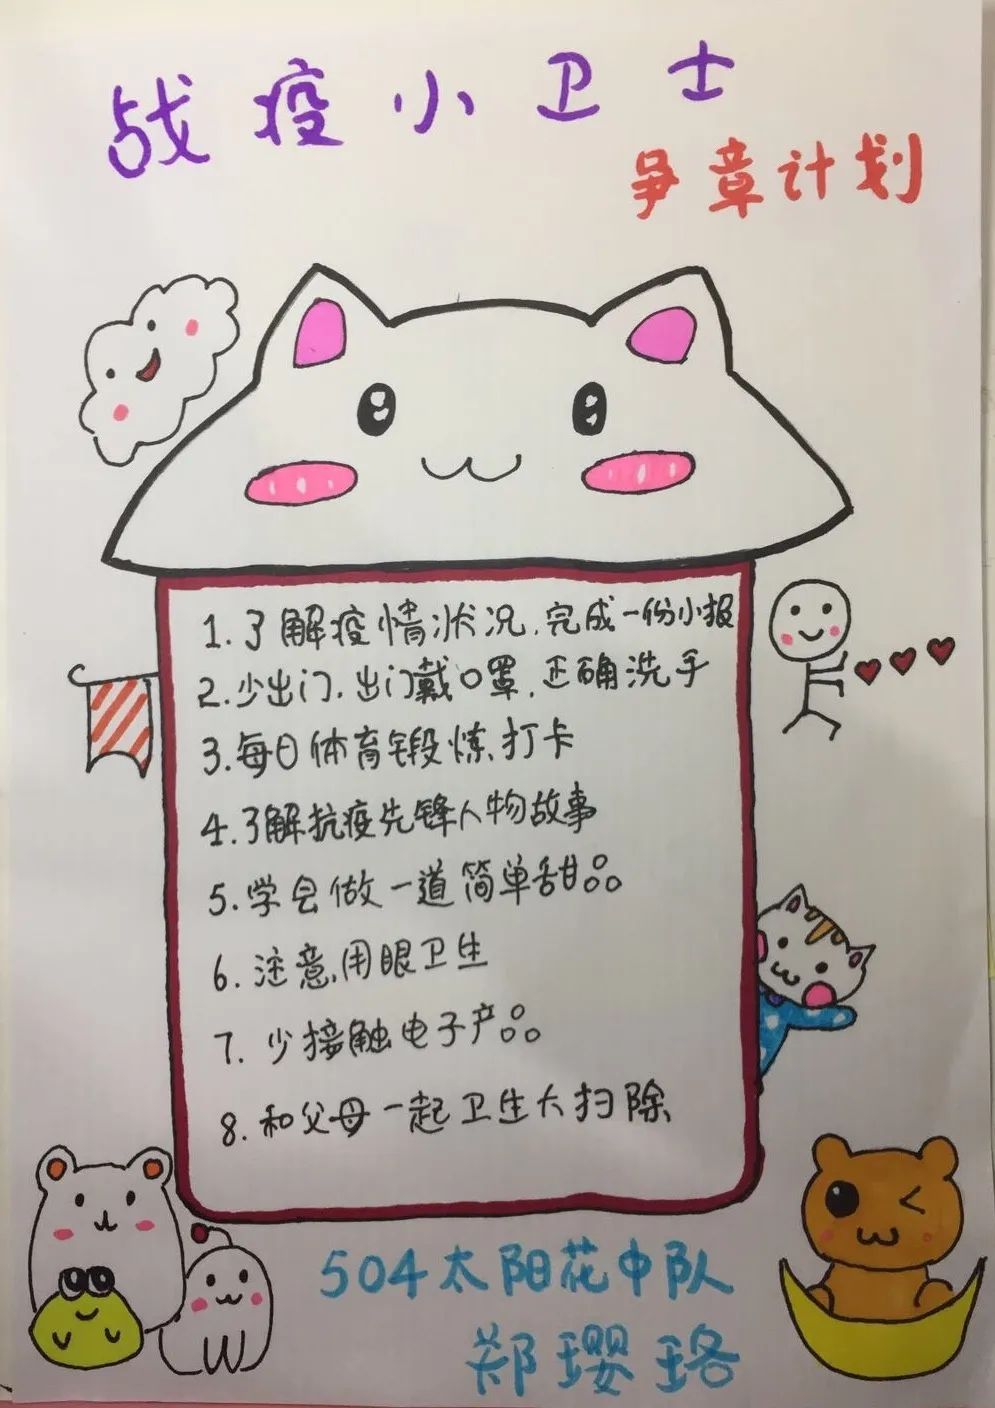 战疫小卫士
争章计划
1.了解疫情状况,完成一份小报
2.少出门,出门戴口罩,正确洗手
3.每日体育锻炼,打卡
4.了解抗疫先锋人物故事
5.学会做一道简单甜品
6.注意用眼卫生
7.少接触电子产品
8.和父母一起卫生大扫除
504太阳花中队
郑璎珞